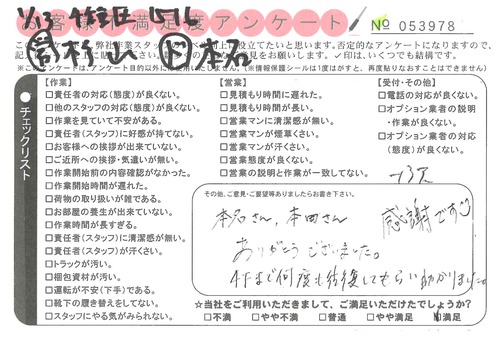 お客様不満足度アンケート
№ 053978
1/13
本石
記
※このアンケートは、アンケート目的以外には使用いたしません。(※情報保護シールは1度はがすと、再度貼りなおすことはできません)
チェックリスト
【作業】
□責任者の対応(態度)が良くない。
□他のスタッフの対応(態度)が良くない。
□作業を見ていて不安がある。
□責任者(スタッフ)に好感が持てない。
□お客様への挨拶が出来ていない。
□ご近所への挨拶・気遣いが無い。
□作業開始前の内容確認がなかった。
□作業開始時間が遅れた。
□荷物の取り扱いが雑である。
□お部屋の養生が出来ていない。
□作業時間が長すぎる。
□責任者(スタッフ)に清潔感が無い。
□責任者(スタッフ)が汗くさい。
□トラックが汚い。
□梱包資材が汚い。
□運転が不安(下手)である。
□靴下の履き替えをしてない。
□スタッフにやる気がみられない。
【営業】
□見積もり時間に遅れた。
□見積もり時間が長い。
□営業マンに清潔感が無い。
□営業マンが煙草くさい。
□営業マンが汗くさい。
□営業態度が良くない。
□営業の説明と作業が一致してない。
【受付・その他】
□電話の対応が良くない。
□オプション業者の説明
・作業が良くない。
□オプション業者の対応
(態度)が良くない。
その他、ご意見・ご要望等ありましたらお書き下さい。
本石さん、本田さん
ありがとうございました。
4Fまで何度も往復してもらい助かりました。
感謝です
☆当社をご利用いただきまして、ご満足いただけたでしょうか?
□不満 □やや不満 □普通 □やや満足 ☑満足